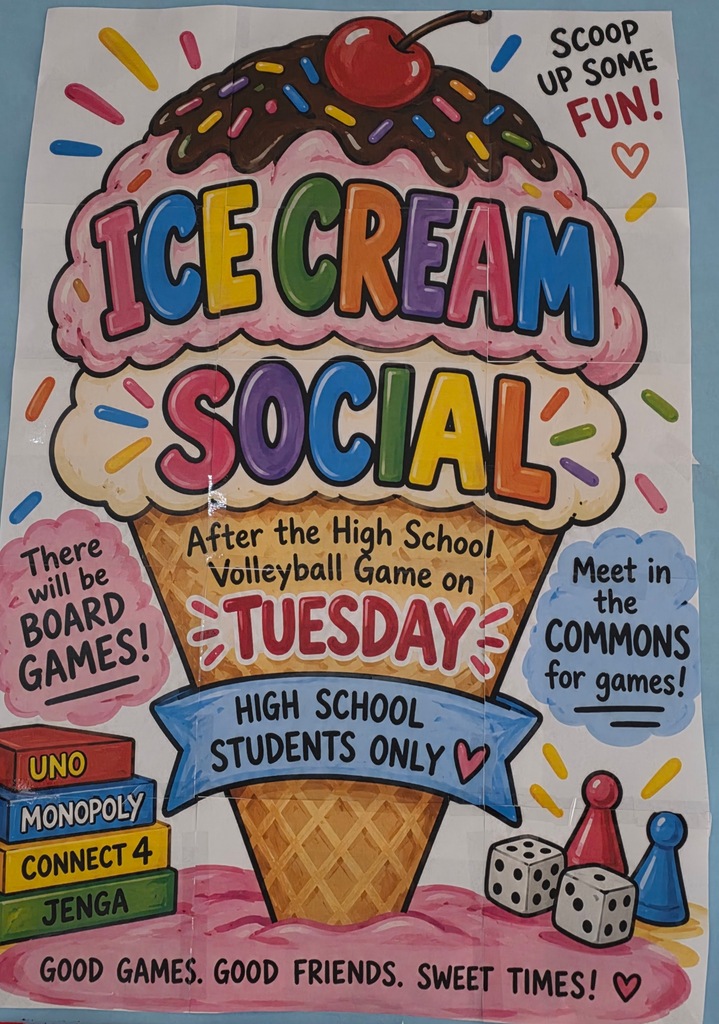 SCOOP
UP SOME
FUN!
ICE CREAM
SOCIAL
After the High School
Volleyball Game on
TUESDAY
HIGH SCHOOL
STUDENTS ONLY
There
will be
BOARD
GAMES!
Meet in
the
COMMONS
for games!
UNO
MONOPOLY
CONNECT 4
JENGA
GOOD GAMES. GOOD FRIENDS. SWEET TIMES!